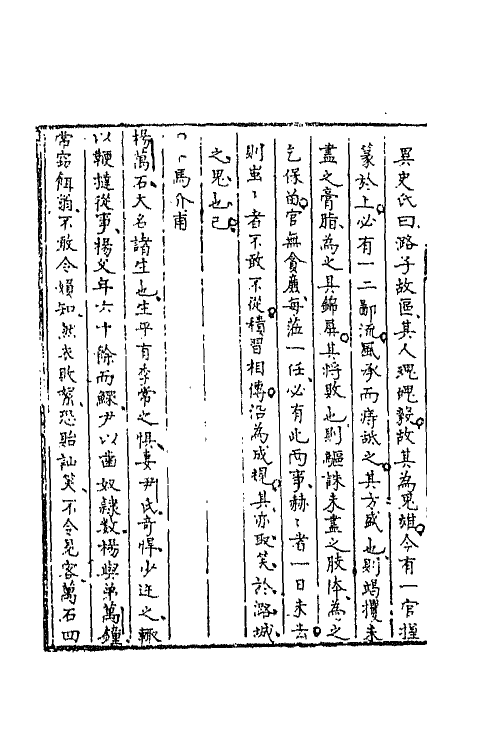 異史氏曰潞子故區其人魂魄毅故其為鬼雄今有一官握
篆於上必有一二鄙流風承而痔舐之其方盛也則竭攫未
盡之膏脂為之具錦屏其將敗也則驅誅未盡之肢体為之
乞保留官無貪廉每蒞一任必有此兩事赫〻者一日未去
則蚩〻者不敢不從積習相傳沿為成規其亦取笑於潞城
之鬼也已
馬介甫
楊萬石大名諸生也生平有季常之惧妻尹氏奇悍少迕之輒
以鞭撻從事楊父年六十餘而鰥尹以齒奴隸数楊與弟萬鐘
常竊餌翁不敢令婦知然衣敗絮恐貽訕笑不令見客萬石四